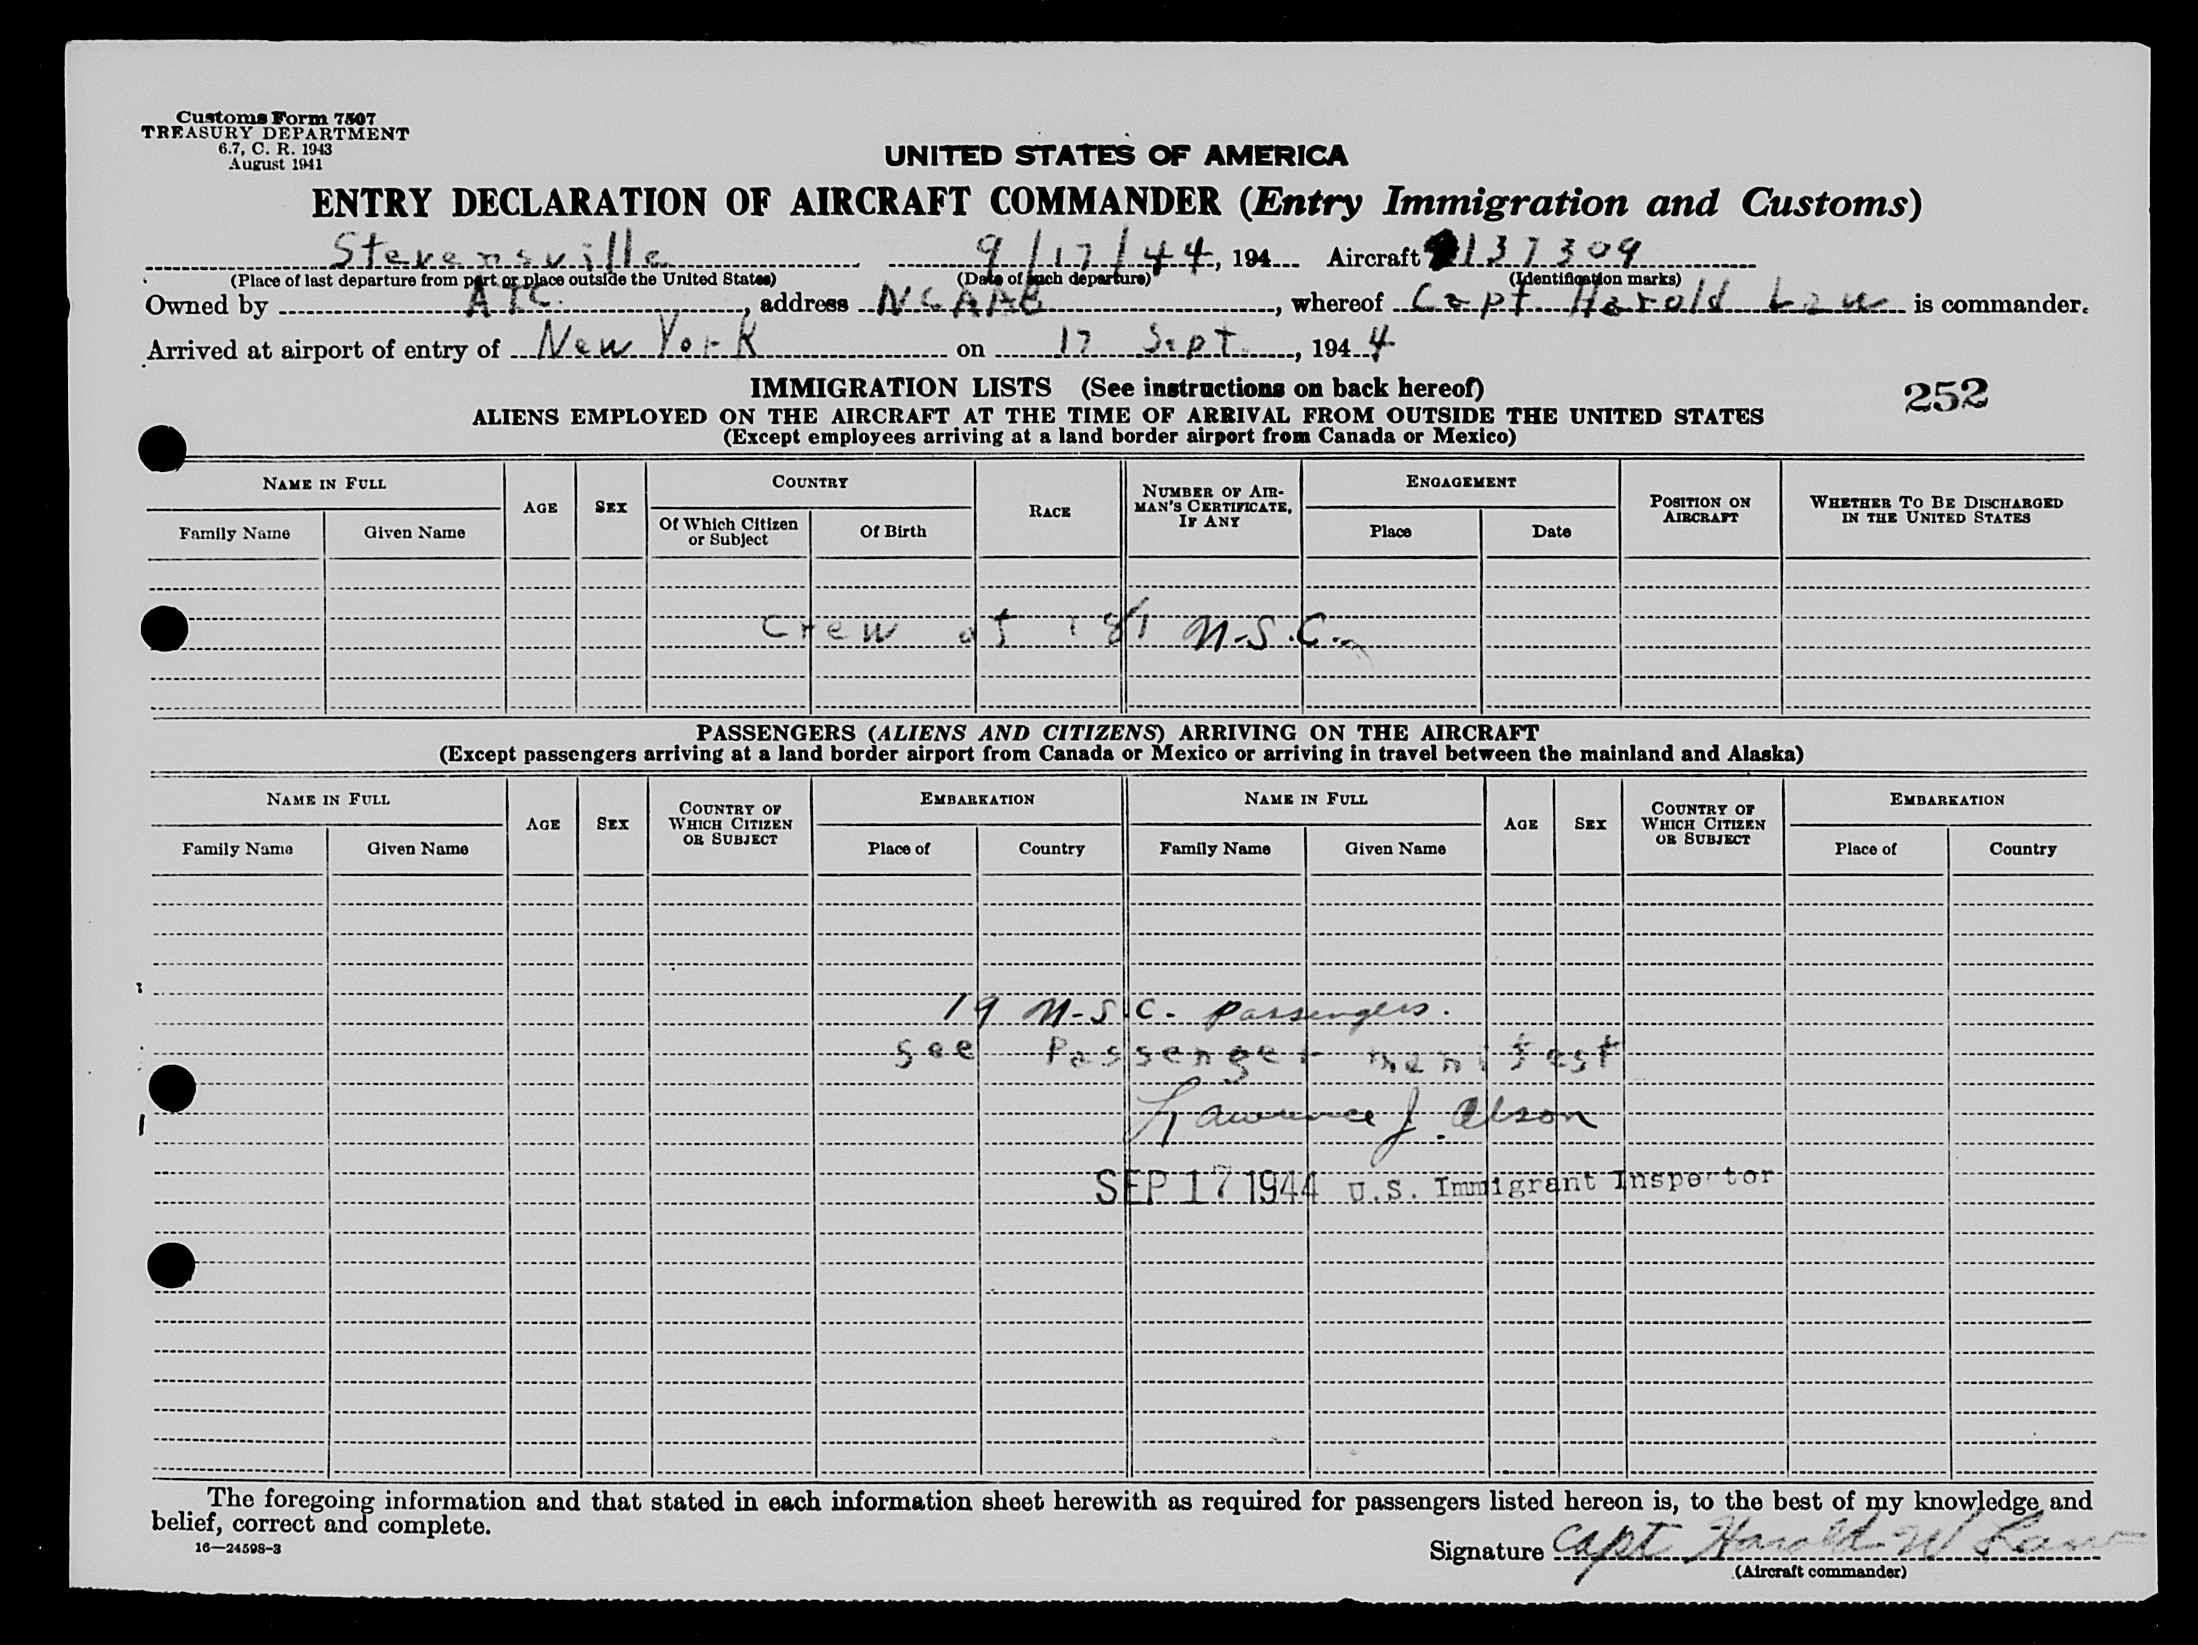 Customs Form 7507
TREASURY DEPARTMENT
6.7, C. R. 1943
August 1941
UNITED STATES OF AMERICA
ENTRY DECLARATION OF AIRCRAFT COMMANDER (Entry Immigration and Customs)
Stevensville 9/17/44, 194 Aircraft 137309
(Place of last departure from port or place outside the United States) (Date of such departure) (Identification marks)
Owned by ATC, address NCAAB, whereof Capt Harold Law is commander.
Arrived at airport of entry of New York on 17 Sept., 1944
IMMIGRATION LISTS (See instructions on back hereof)
252
ALIENS EMPLOYED ON THE AIRCRAFT AT THE TIME OF ARRIVAL FROM OUTSIDE THE UNITED STATES
(Except employees arriving at a land border airport from Canada or Mexico)
NAME IN FULL AGE SEX COUNTRY RACE NUMBER OF AIRMAN'S CERTIFICATE, IF ANY ENGAGEMENT POSITION ON AIRCRAFT WHETHER TO BE DISCHARGED IN THE UNITED STATES
Family Name Given Name Of Which Citizen or Subject Of Birth Place Date
Crew of N.S.C.
PASSENGERS (ALIENS AND CITIZENS) ARRIVING ON THE AIRCRAFT
(Except passengers arriving at a land border airport from Canada or Mexico or arriving in travel between the mainland and Alaska)
NAME IN FULL AGE SEX COUNTRY OF WHICH CITIZEN OR SUBJECT EMBARKATION NAME IN FULL AGE SEX COUNTRY OF WHICH CITIZEN OR SUBJECT EMBARKATION
Family Name Given Name Place of Country Family Name Given Name Place of Country
19 N.S.C. passengers.
See Passenger manifest
Lawrence J. Olson
SEP 17 1944 U.S. Immigrant Inspector
The foregoing information and that stated in each information sheet herewith as required for passengers listed hereon is, to the best of my knowledge and
belief, correct and complete.
16—24598-3
Signature Capt Harold W Law
(Aircraft commander)